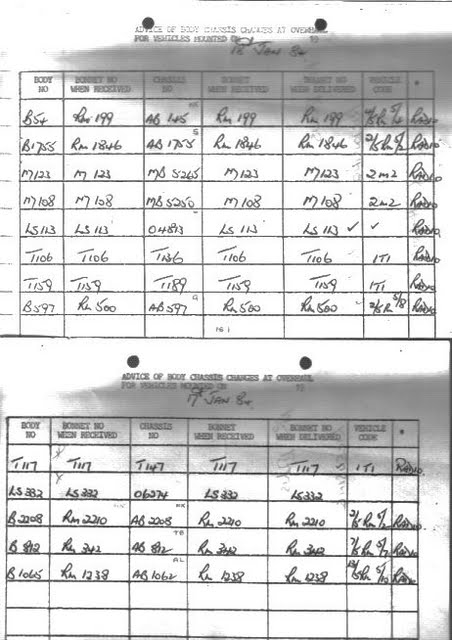 ADVICE OF BODY CHASSIS CHANGES AT OVERHAUL
FOR VEHICLES MOUNTED ON 19
18th JAN 84
BODY NO BONNET NO WHEN RECEIVED CHASSIS NO BONNET WHEN RECEIVED BONNET NO WHEN DELIVERED VEHICLE CODE *
B54 RM 199 AB 145 RM 199 RM 199 RADIO
B1755 RM 1846 AB 1755 RM 1846 RM 1846 RADIO
M123 M 123 MB 5265 M 123 M123 2M2 RADIO
M108 M 108 MB 5250 M 108 M108 2M2 RADIO
LS 113 LS 113 04813 LS 113 LS 113 ✓ ✓ RADIO
T106 T106 T136 T106 T106 1T1 RADIO
T159 T159 T189 T159 T159 1T1 RADIO
B597 RM 500 AB 597 RM 500 RM 500 2/5 RM 5/8 RADIO
ADVICE OF BODY CHASSIS CHANGES AT OVERHAUL
FOR VEHICLES MOUNTED ON 19
17th JAN 84
BODY NO BONNET NO WHEN RECEIVED CHASSIS NO BONNET WHEN RECEIVED BONNET NO WHEN DELIVERED VEHICLE CODE *
T117 T117 T147 T117 T117 1T1 RADIO
LS 332 LS 332 06274 LS 332 LS 332
B 2208 RM 2210 AB 2208 RM 2210 RM 2210 RADIO
B 812 RM 342 AB 812 RM 342 RM 342 RADIO
B 1065 RM 1238 AB 1062 RM 1238 RM 1238 RADIO